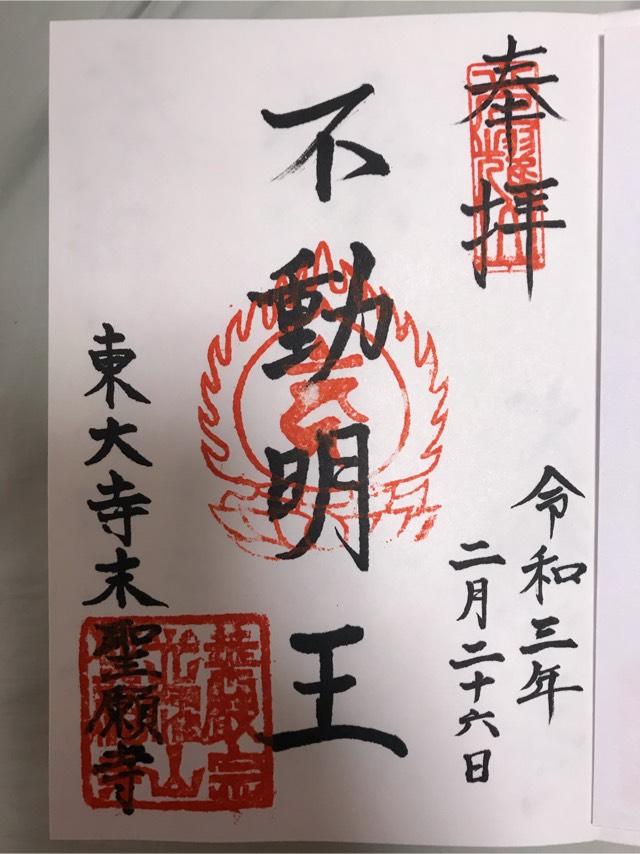 奉拝
令和三年
二月二十六日
不動明王
東大寺末聖願寺
華厳宗